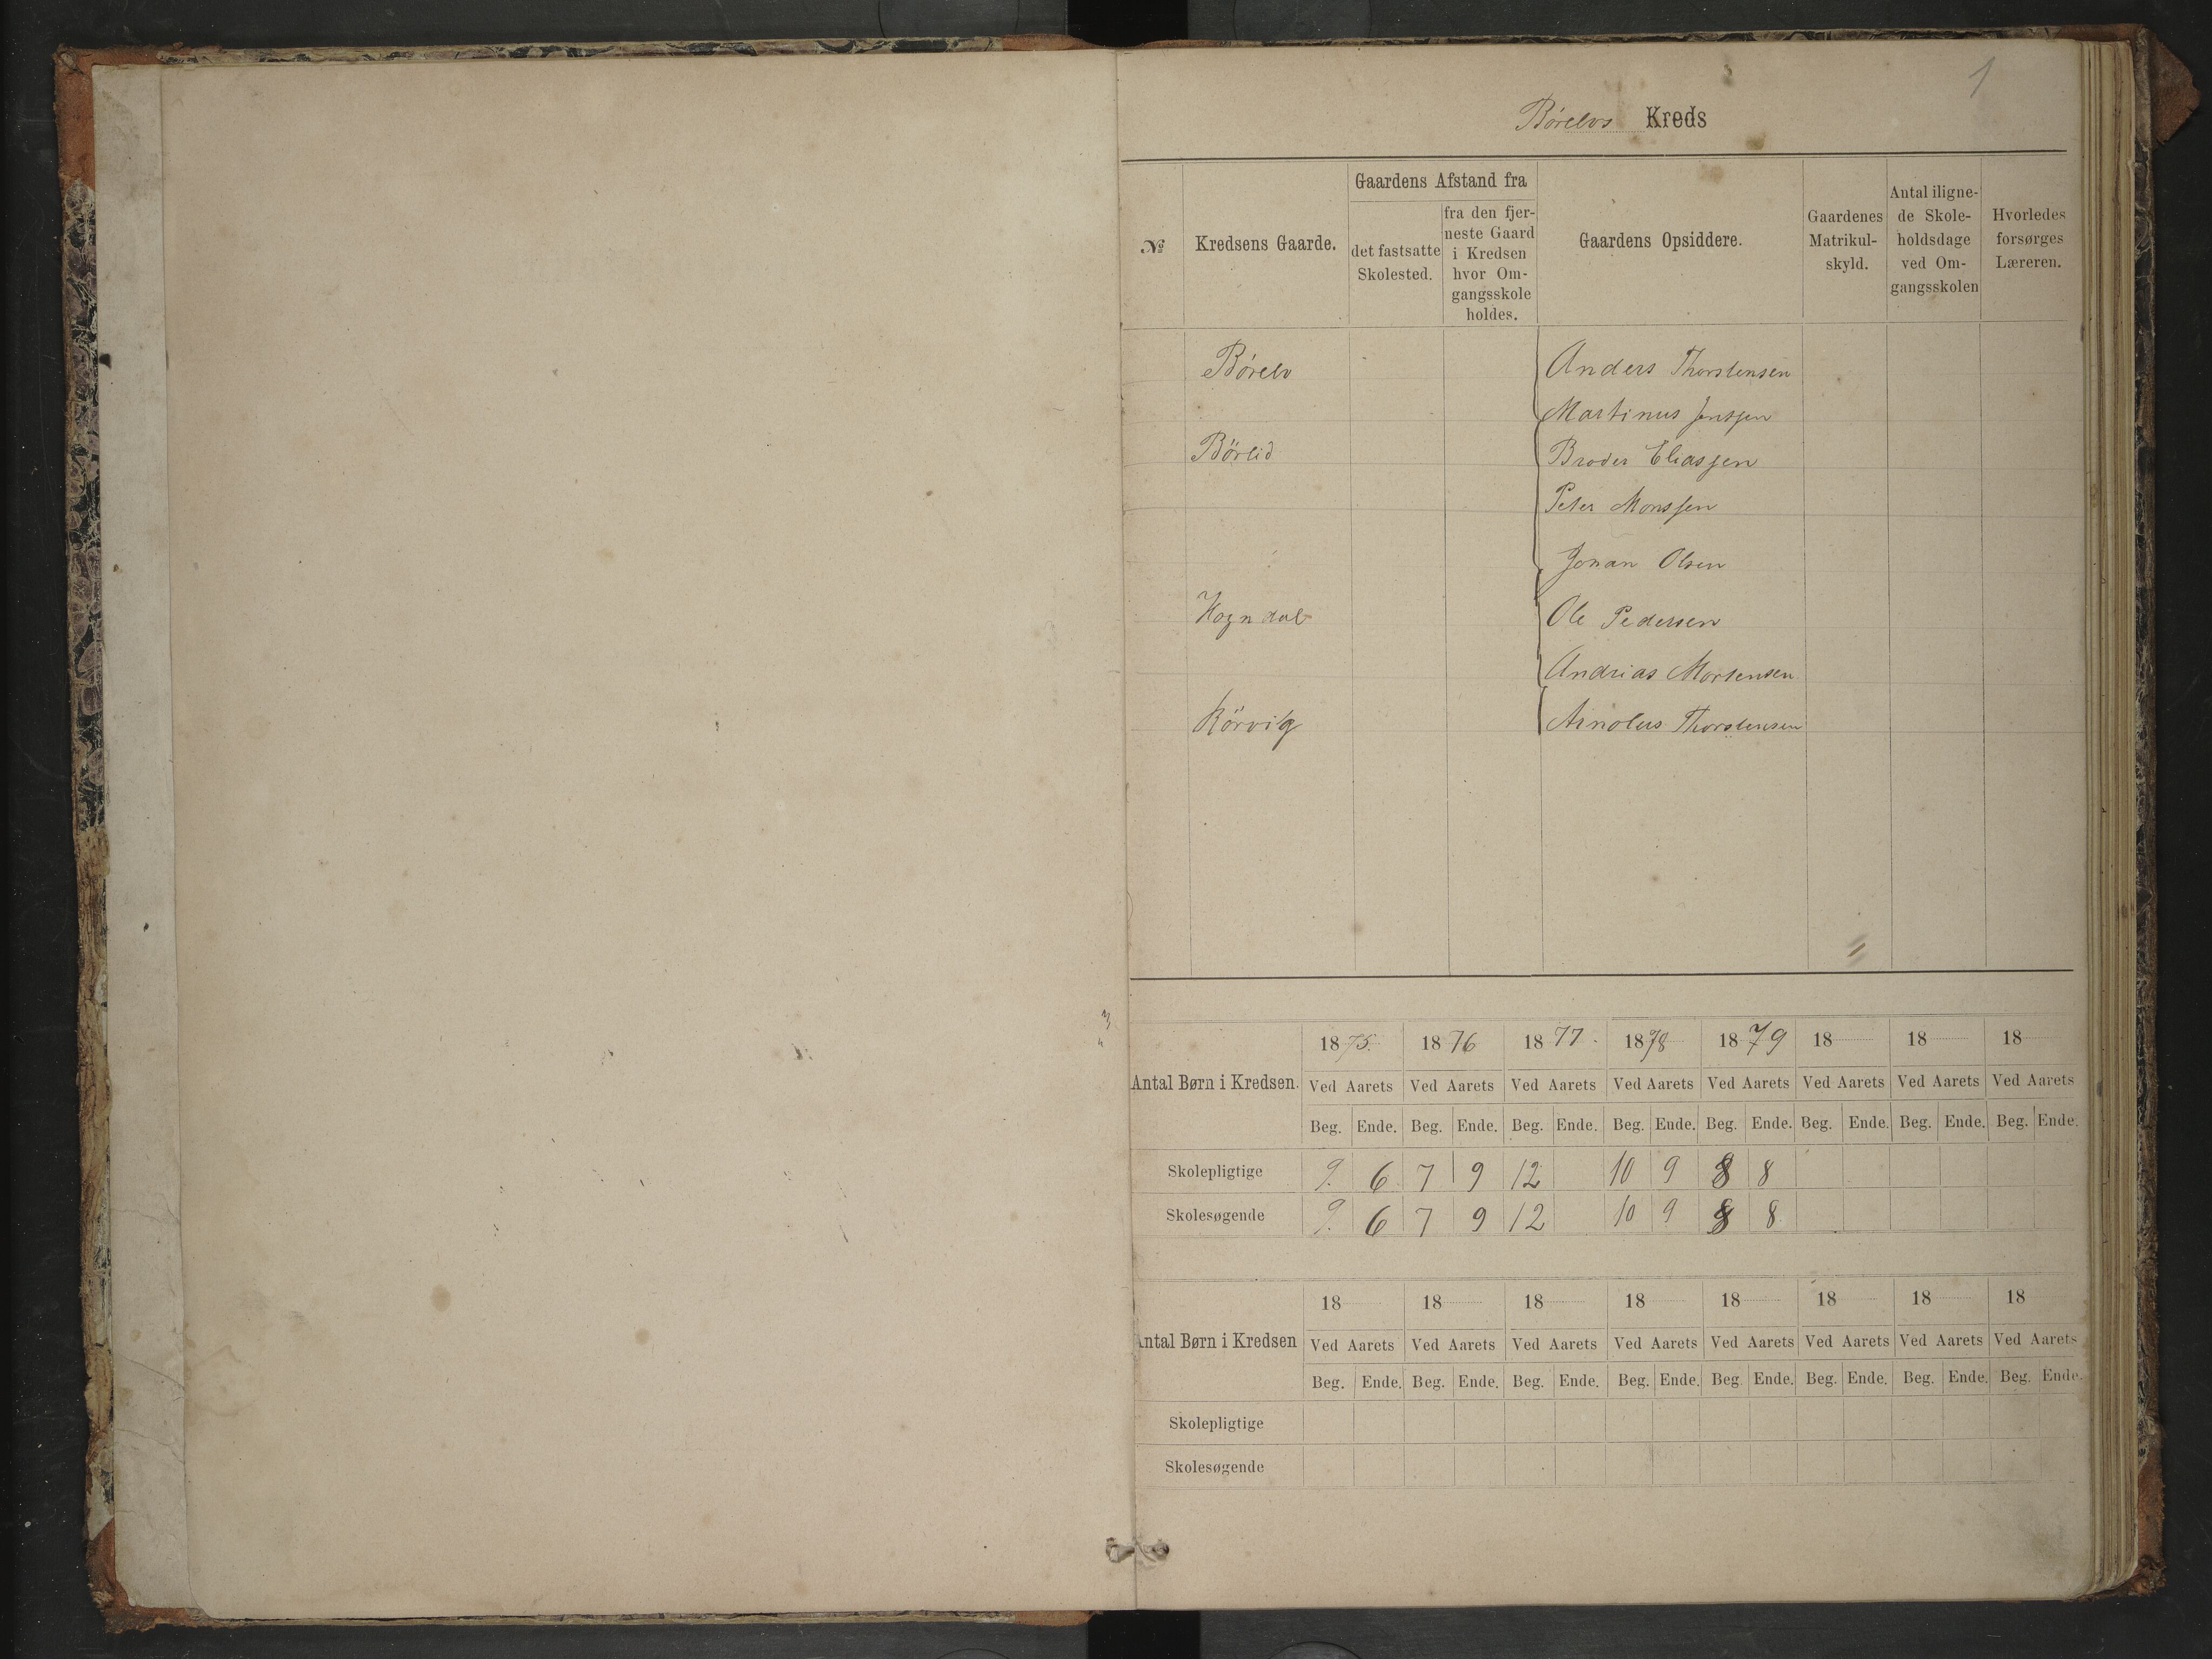 1
Børelvs Kreds
№ Kredsens Gaarde. Gaardens Afstand fra det fastsatte Skolested. fra den fjer-neste Gaard i Kredsen hvor Om-gangsskole holdes. Gaardens Opsiddere. Gaardenes Matrikul-skyld. Antal iligne-de Skole-holdsdage ved Om-gangsskolen Hvorledes forsørges Læreren.
Børelv Anders Thorstensen
Martinus Jentsen
Börlid Broder Eliassen
Peter Monssen
Johan Olsen
Hogndal Ole Pedersen
Andrias Mortensen
Rörvig Arnolus Thorstensen
Antal Børn i Kredsen. 1875. 1876 1877. 1878 1879 18 18 18
Ved Aarets Ved Aarets Ved Aarets Ved Aarets Ved Aarets Ved Aarets Ved Aarets Ved Aarets
Beg. Ende. Beg. Ende. Beg. Ende. Beg. Ende. Beg. Ende. Beg. Ende. Beg. Ende. Beg. Ende.
Skolepligtige 9. 6 7 9 12 10 9 8 8
Skolesøgende 9. 6 7 9 12 10 9 8 8
Antal Børn i Kredsen 18 18 18 18 18 18 18 18
Ved Aarets Ved Aarets Ved Aarets Ved Aarets Ved Aarets Ved Aarets Ved Aarets Ved Aarets
Beg. Ende. Beg. Ende. Beg. Ende. Beg. Ende. Beg. Ende. Beg. Ende. Beg. Ende. Beg. Ende.
Skolepligtige
Skolesøgende